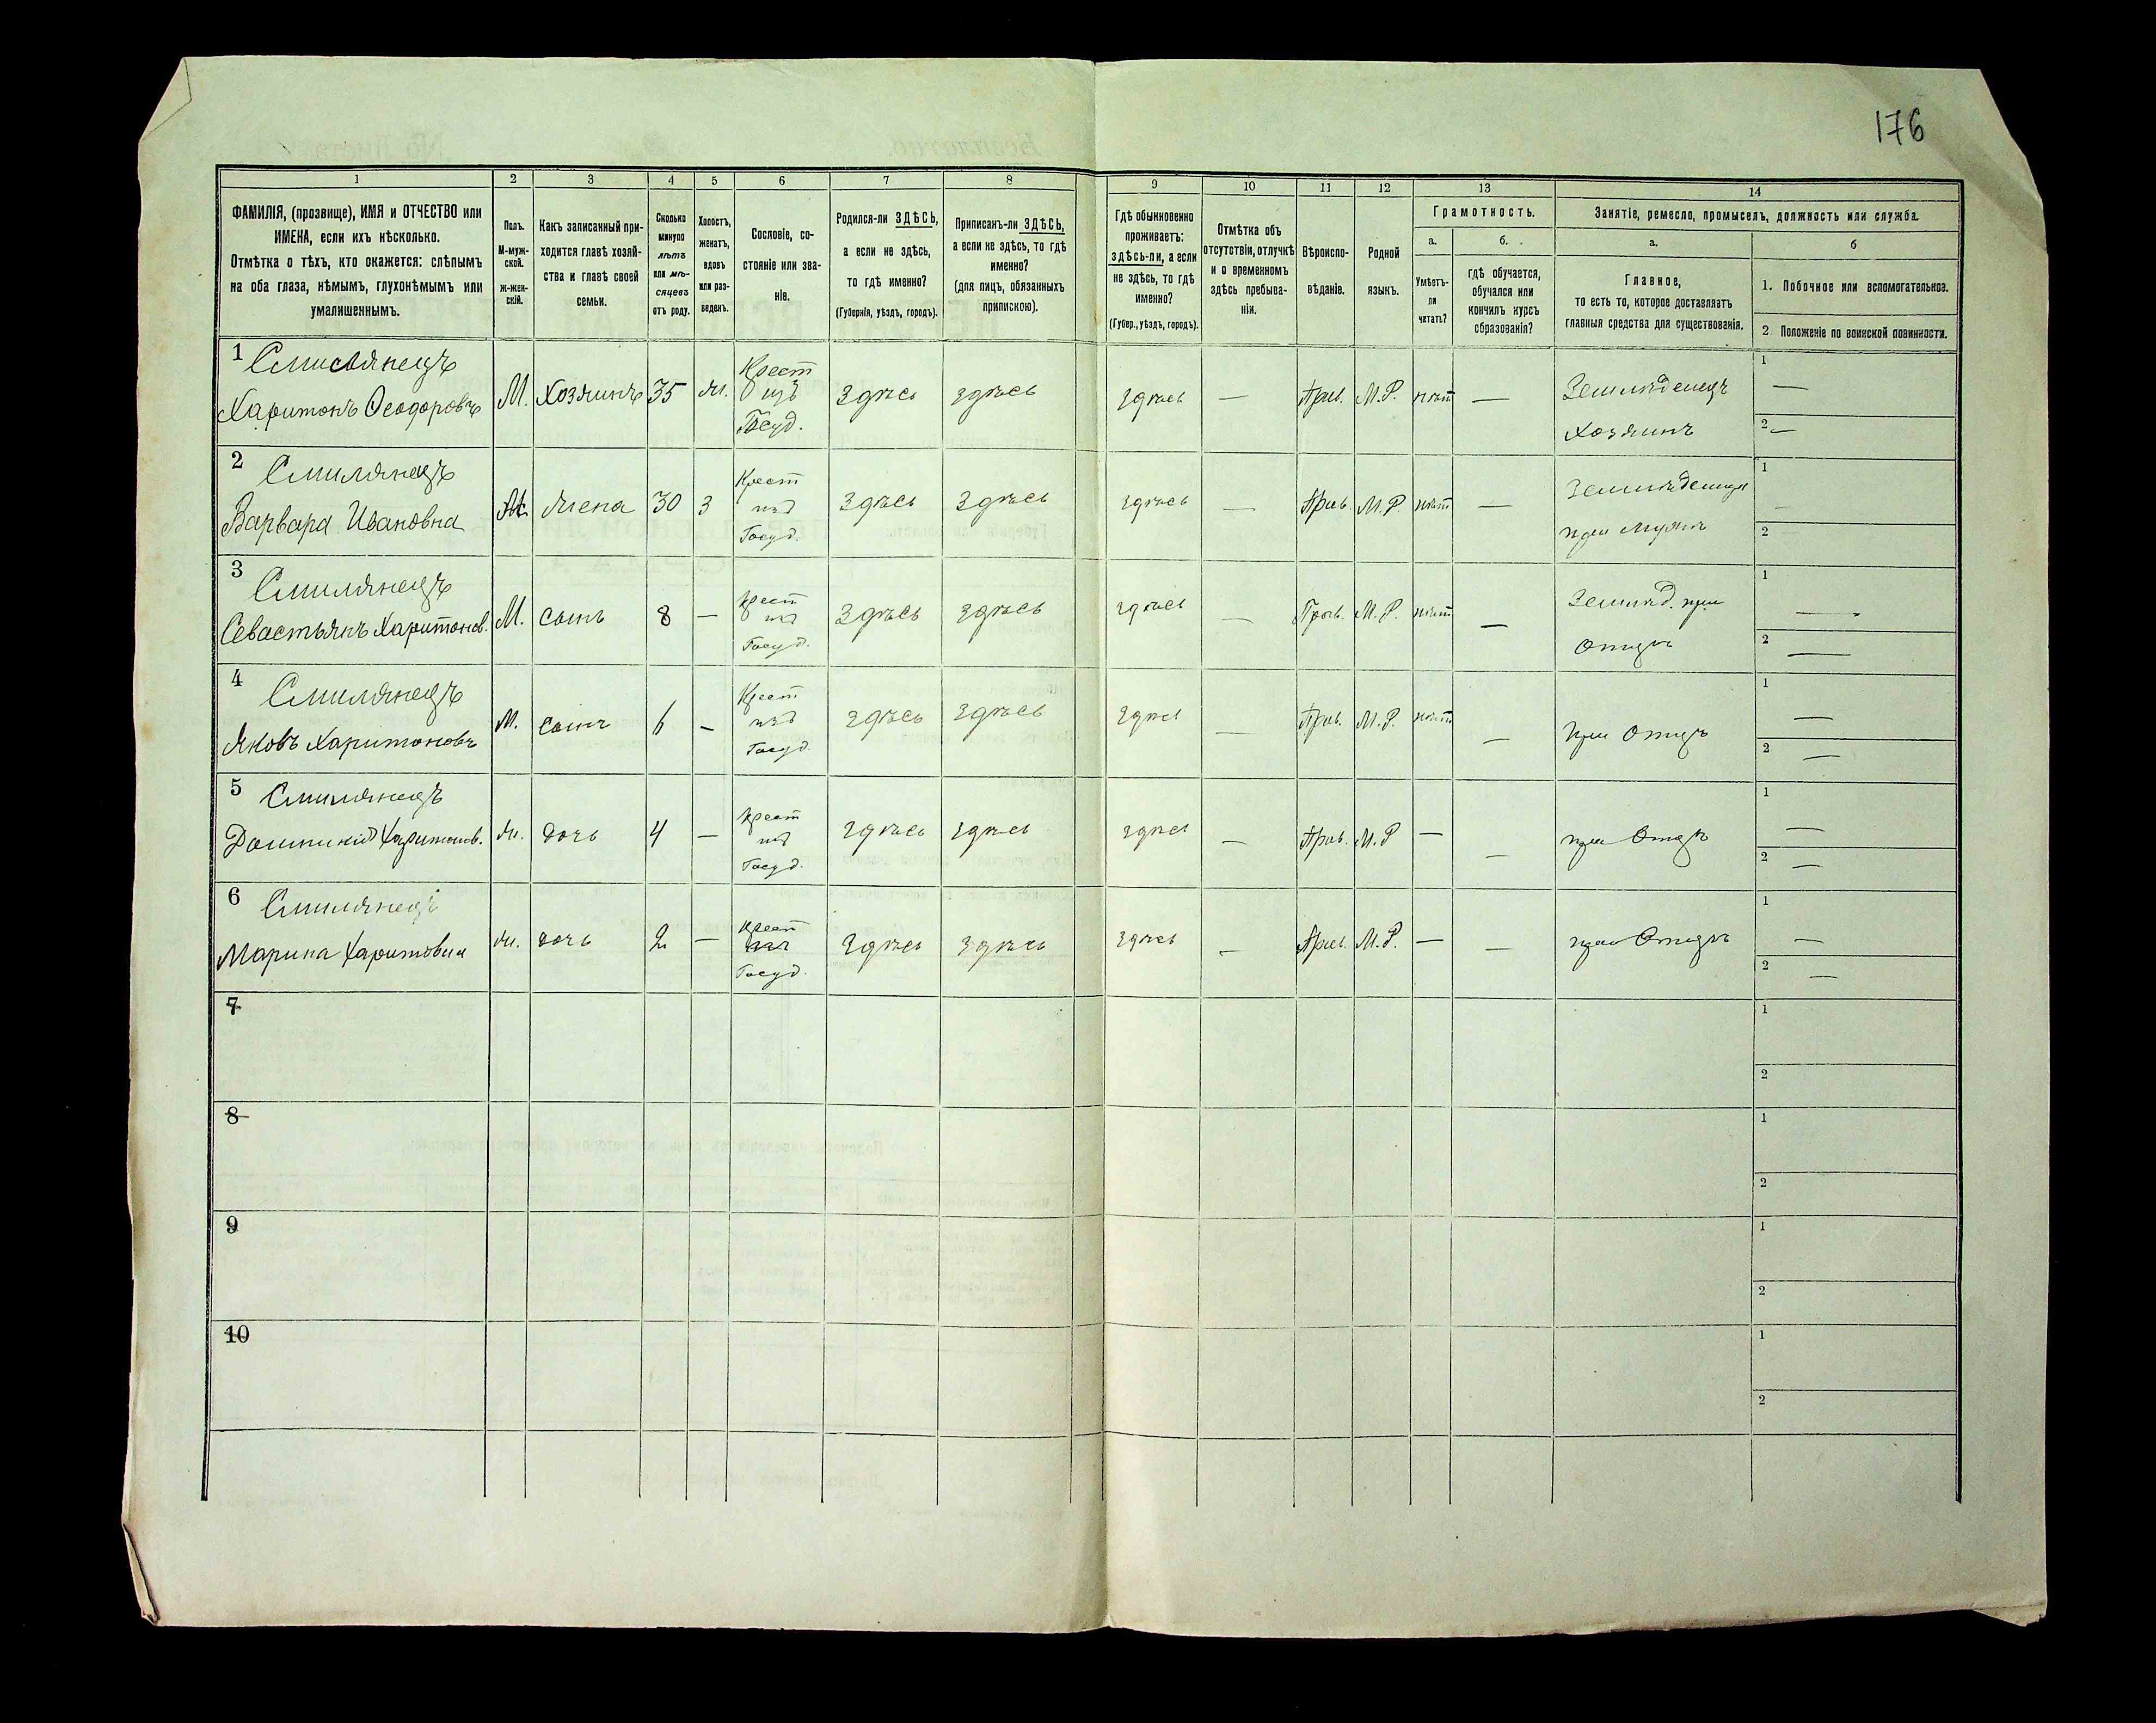 176
1 2 3 4 5 6 7 8 9 10 11 12 13 14
ФАМИЛІЯ, (прозвище), ИМЯ и ОТЧЕСТВО или
ИМЕНА, если ихъ нѣсколько.
Отмѣтка о тѣхъ, кто окажется: слѣпымъ
на оба глаза, нѣмымъ, глухонѣмымъ или
умалишеннымъ.
Полъ.
М-муж-
ской.
ж-жен-
скій.
Какъ записанный при-
ходится главѣ хозяй-
ства и главѣ своей
семьи.
Сколько
минуло
лѣтъ
или мѣ-
сяцевъ
отъ роду.
Холостъ,
женатъ,
вдовъ
или раз-
веденъ.
Сословіе, со-
стояніе или зва-
ніе.
Родился-ли ЗДѢСЬ,
а если не здѣсь,
то гдѣ именно?
(Губернія, уѣздъ, городъ).
Приписанъ-ли ЗДѢСЬ,
а если не здѣсь, то гдѣ
именно?
(для лицъ, обязанныхъ
припискою).
Гдѣ обыкновенно
проживаетъ:
здѣсь-ли, а если
не здѣсь, то гдѣ
именно?
(Губер., уѣздъ, городъ).
Отмѣтка объ
отсутствіи, отлучкѣ
и о временномъ
здѣсь пребыва-
ніи.
Вѣроиспо-
вѣданіе.
Родной
языкъ.
Грамотность.
а.
Умѣетъ-
ли
читать?
б.
гдѣ обучается,
обучался или
кончилъ курсъ
образованія?
Занятіе, ремесло, промыселъ, должность или служба.
а.
Главное,
то есть то, которое доставляетъ
главныя средства для существованія.
б
1. Побочное или вспомогательное.
2. Положеніе по воинской повинности.
1 Смилянецъ
Харитонъ Ѳеодоровъ
М. Хозяинъ 35 ж.
Крест
изъ
Госуд.
Здѣсь здѣсь здѣсь — Прав. М.Р. нѣт —
Земледѣлецъ
Хозяинъ
1 —
2 —
2 Смилянецъ
Варвара Ивановна
Ж жена 30 З
Крест
изъ
Госуд.
Здѣсь Здѣсь здѣсь — Прав. М.Р. нѣт —
при мужѣ
1
2
3 Смилянецъ
Севастьянъ Харитонов.
М. сынъ 8 —
Крест
изъ
Госуд.
Здѣсь здѣсь здѣсь — Прав. М.Р. нѣт —
Землед. при
отцѣ
1 —
2 —
4 Смилянецъ
Яковъ Харитоновъ
М. сынъ 6 —
Крест
изъ
Госуд.
здѣсь здѣсь здѣсь — Прав. М.Р. нѣт —
при отцѣ
1 —
2 —
5 Смилянецъ
Харитонов.
ж. дочь 4 —
Крест
изъ
Госуд.
здѣсь здѣсь здѣсь — Прав. М.Р — —
при отцѣ
1 —
2 —
6 Смилянецъ
Марина
ж. дочь 2 —
Крест
изъ
Госуд.
здѣсь здѣсь здѣсь — Прав. М.Р. — —
при отцѣ
1 —
2 —
7
1
2
8
1
2
9
1
2
10
1
2